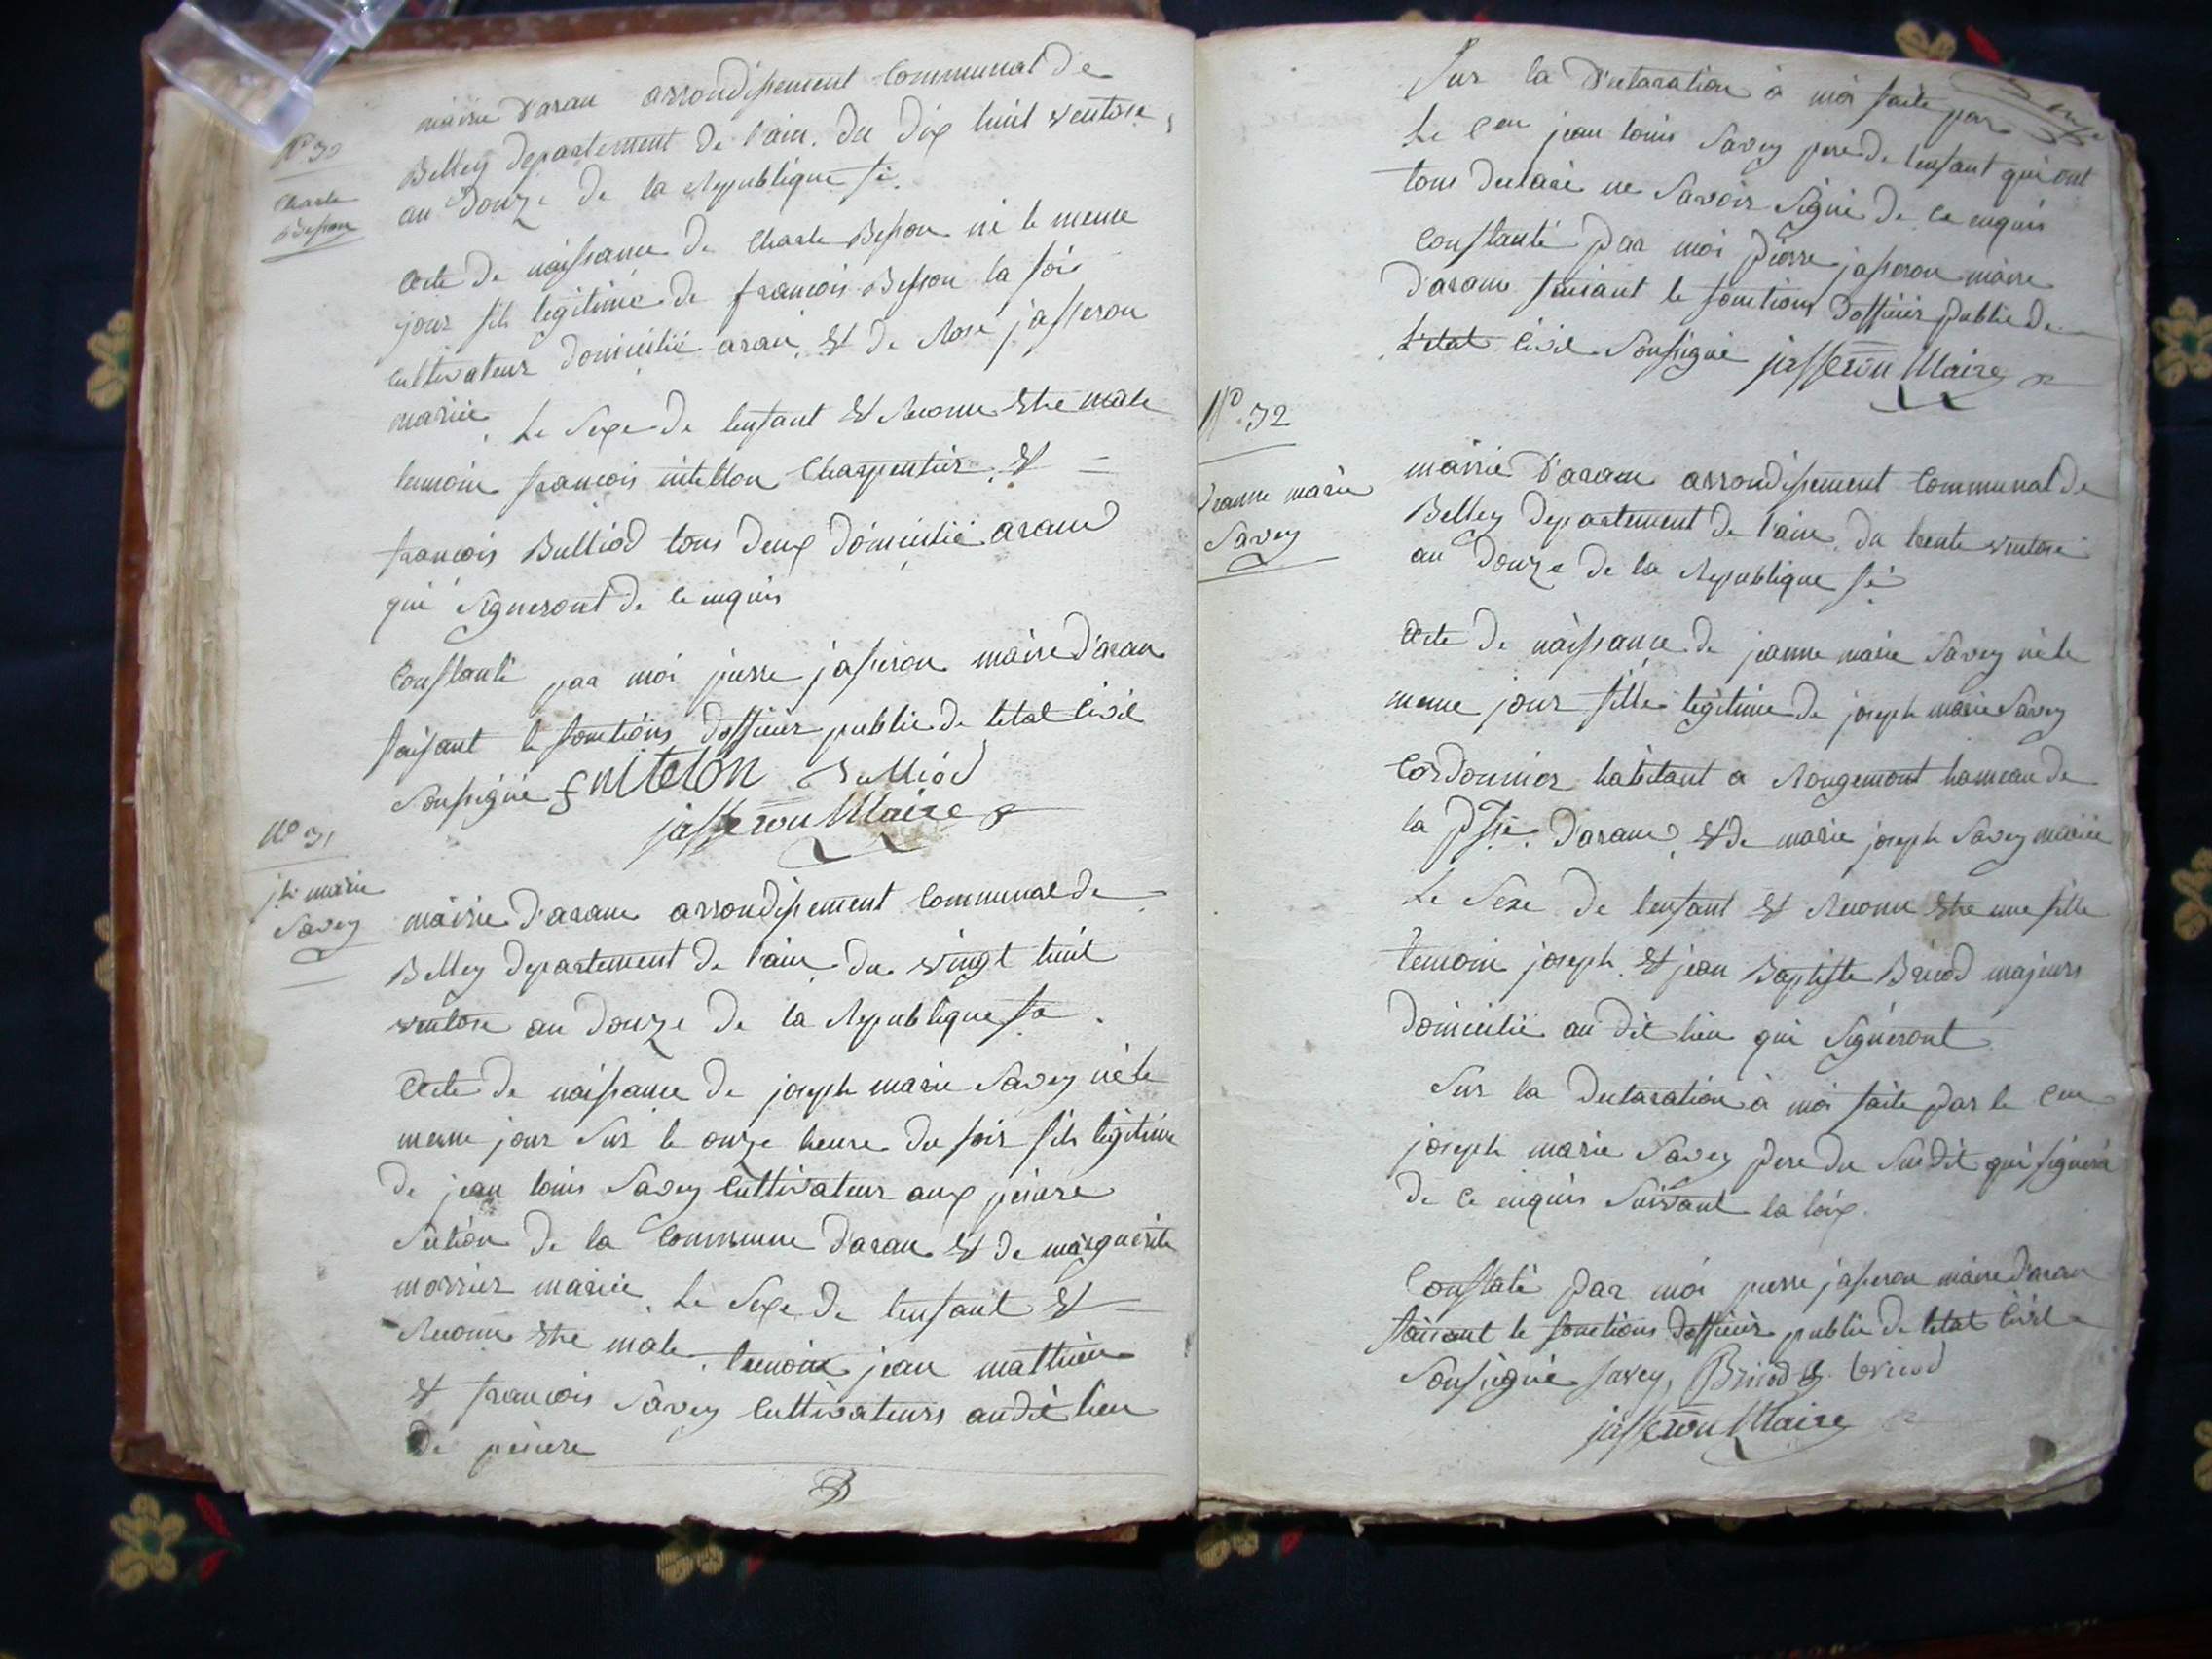 mairie d'aran arrondissement communal de
N° 30
Belley departement de l'ain. du dix huit ventose
an douze de la Republique fs.
Charle
Besson
Acte de naissance de Charle Besson né le meme
jour fils legitime de francois Besson la
cultivateur domicilié aran, et de Rose jasseron
mariée. Le sexe de lenfant et reconu etre male
temoin francois nitellon Charpentier et
francois Bulliod tous deux domicilié aranc
qui signeront de ce enquis
Constanté par moi pierre jasseron maire d'aran
faisant le fonctions d'officier public de letat civil
soussigné f nitelon Bulliod
jasseron Maire
N° 31
jh marie
Savey
mairie d'aranc arrondissement communal de
Belley departement de l'ain du vingt huit
ventose an douze de la Republique fse
Acte de naissance de joseph marie Savey né le
meme jour sur le onze heure du soir fils légitime
de jean louis Savey cultivateur aux
section de la commune d'aran et de marguerite
morrier mariée. Le sexe de lenfant et
reconu etre male. temoin jean matthieu
et francois Savey cultivateurs audit lieu
de
Sur la déclaration à moi faite par
Le Cen jean louis Savey pere de lenfant qui ont
tous declaré ne savoir signé de ce enquis
Constanté par moi pierre jasseron maire
d'aranc faisant le fonctions d'officier public de
l'etat civil soussigné jasseron Maire
N° 32
Jeanne marie
Savey
mairie d'aranc arrondissement communal de
Belley departement de l'ain. du trente ventose
an douze de la Republique fse
Acte de naissance de jeanne marie Savey né le
meme jour fille légitime de joseph marie Savey
Cordonnier habitant a Rougemont hameau de
la psse. d'aranc, et de marie joseph Savey mariée
Le Sexe de lenfant et reconu etre une fille
temoin joseph et jean Baptiste Bricod majeurs
domicilié au dit lieu qui signeront
Sur la declaration à moi faite par le Cen
joseph marie Savey pere du susdit qui signera
de ce enquis suivant la loix.
Constaté par moi pierre jasseron maire d'aran
faisant le fonctions d'officier public de letat civil
soussigné savey, Bricod bricod
jasseron Maire